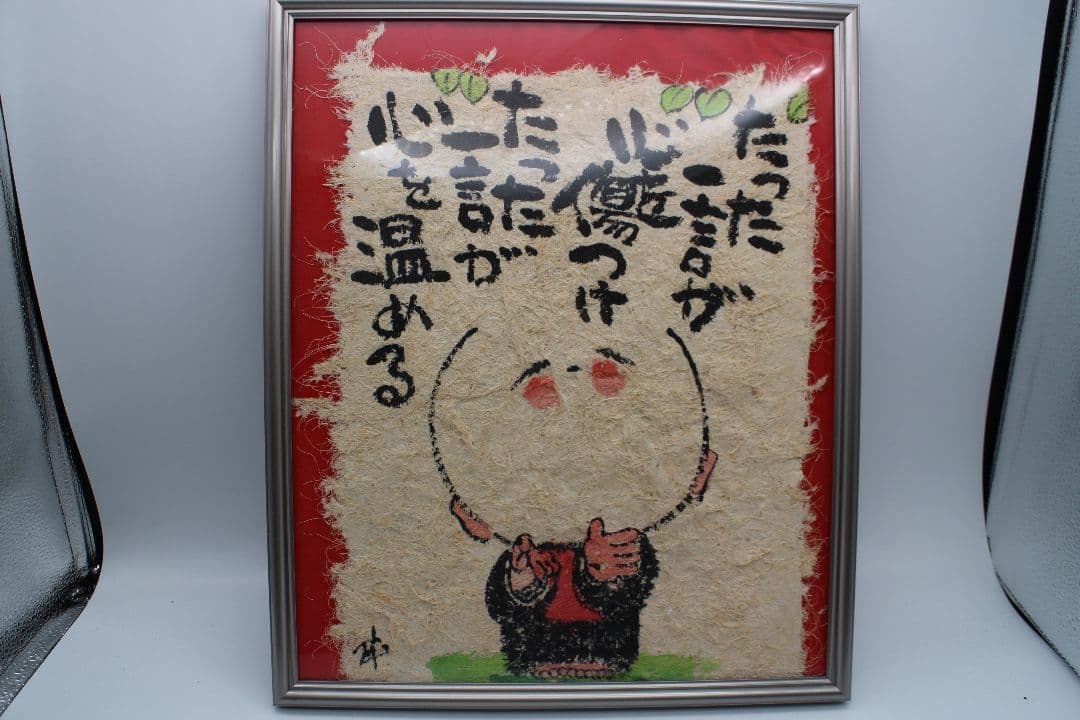 たった
一言が
心を
傷つけ
たった
一言が
心を
温める